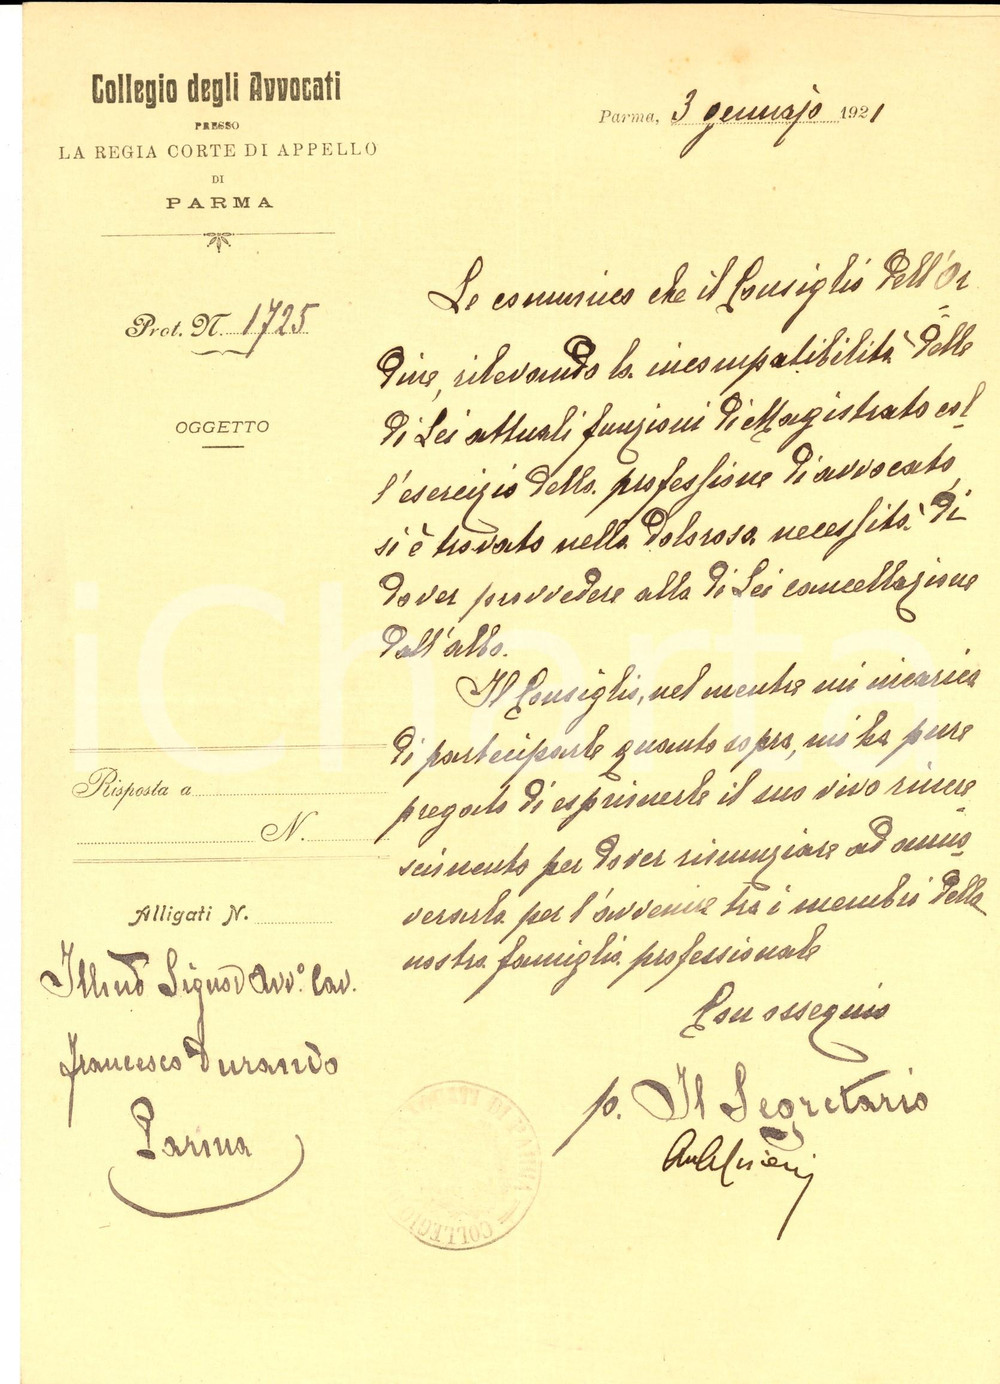 Collegio degli Avvocati
PRESSO
LA REGIA CORTE DI APPELLO
DI
PARMA
Parma, 3 gennajo 1921
Prot. N. 1725
OGGETTO
Le comunico che il Consiglio dell'Or
dine, rilevando la incompatibilità delle
di Lei attuali funzioni di Magistrato col
l'esercizio della professione di avvocato,
si è trovato nella dolorosa necessità di
dover provvedere alla di Lei cancellazione
dall'albo.
Il Consiglio, nel mentre mi incarica
di parteciparle quanto sopra, mi ha pure
pregato di esprimerle il suo vivo rincre
scimento per dover rinunziare ad anno
verarla per l'avvenire tra i membri della
nostra famiglia professionale
Con ossequio
p. Il Segretario
Risposta a
N.
Alligati N.
Illmo Signor Avv.o Cav.
Francesco Durando
Parma
COLLEGIO
iCharta